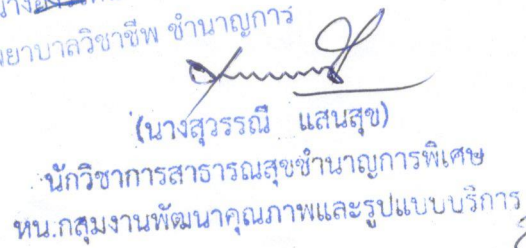 พยาบาลวิชาชีพ ชำนาญการ
(นางสุวรรณี แสนสุข)
นักวิชาการสาธารณสุขชำนาญการพิเศษ
หน.กลุ่มงานพัฒนาคุณภาพและรูปแบบบริการ